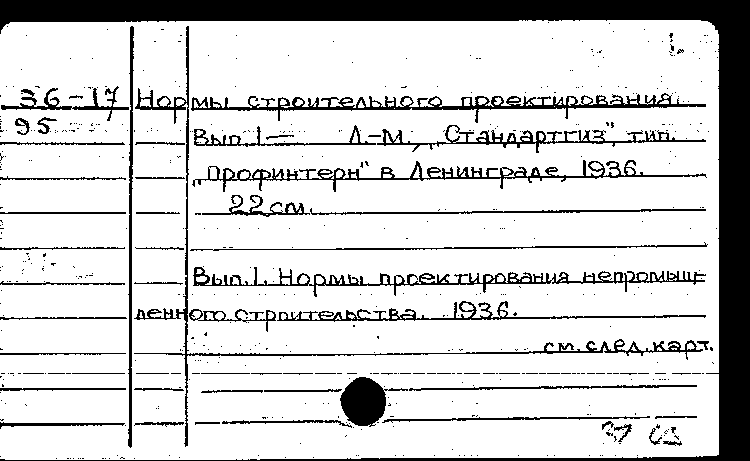 1.
36-17 Нормы строительного проектирования.
95
Вып. 1— Л.-М., „Стандартгиз", тип.
„Профинтерн" в Ленинграде, 1936.
22 см.
Вып. 1. Нормы проектирования непромыш-
ленного строительства. 1936.
см. след. карт.
37